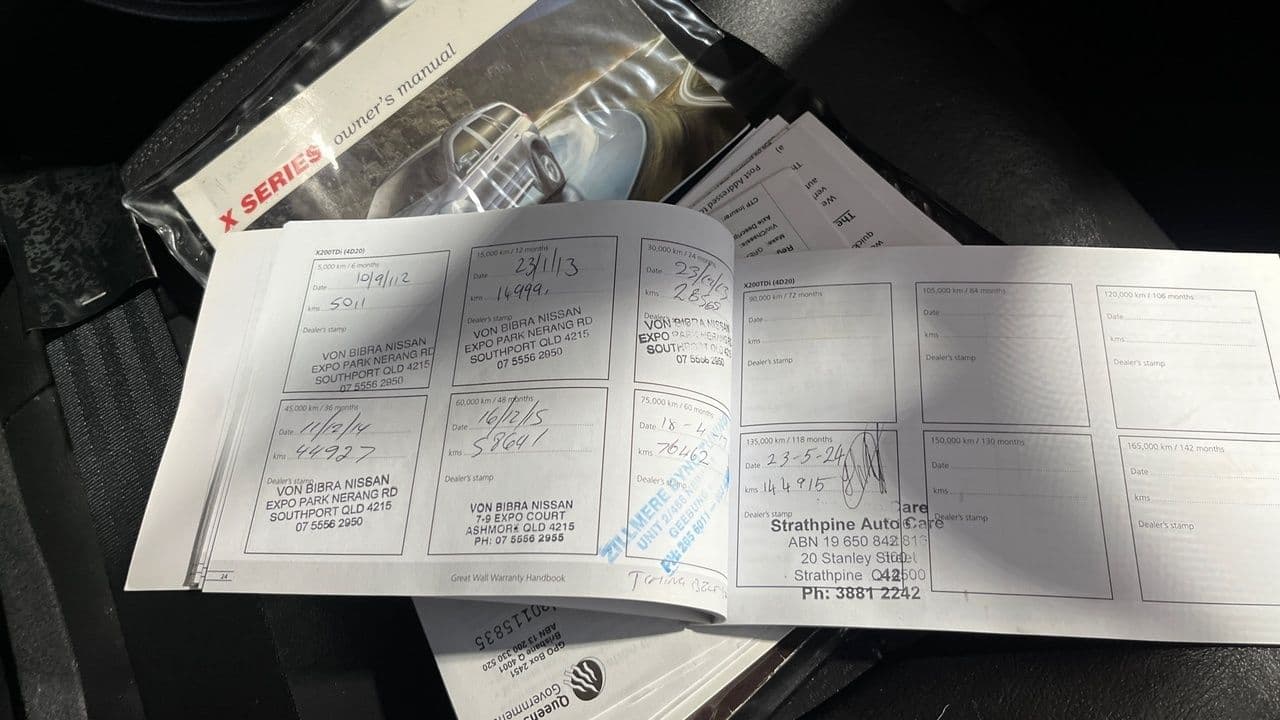 X SERIES owner's manual
a)
Post Addressed t
CTP Insur
Axle Descrip
Make:
Vin/Chassis:
Th
We
aut
veri
The
quick
X200TDi (4D20)
5,000 km / 6 months
Date 10/9/112
kms 5011
Dealer's stamp
VON BIBRA NISSAN
EXPO PARK NERANG RD
SOUTHPORT QLD 4215
07 5556 2950
15,000 km / 12 months
Date 23/1/13
kms 14999.
Dealer's stamp
VON BIBRA NISSAN
EXPO PARK NERANG RD
SOUTHPORT QLD 4215
07 5556 2950
30,000 km / 24 months
Date
kms 28365
Dealer's
VON BIBRA NISSAN
EXPO PARK NERANG RD
SOUTHPORT QLD 42
07 5556 2950
45,000 km / 36 months
Date 11/12/14
kms 44927
Dealer's stamp
VON BIBRA NISSAN
EXPO PARK NERANG RD
SOUTHPORT QLD 4215
07 5556 2950
60,000 km / 48 months
Date 16/12/15
kms 58641
Dealer's stamp
VON BIBRA NISSAN
7-9 EXPO COURT
ASHMORE QLD 4215
PH: 07 5556 2955
75,000 km / 60 months
Date 18-4-
kms 76462
Dealer's
ZILLMERE DYNO
UNIT 2/486
GEEBUNG
PH: 265 6011
24
Great Wall Warranty Handbook
TIMING BELT
X200TDi (4D20)
90,000 km / 72 months
Date
kms
Dealer's stamp
105,000 km / 84 months
Date
kms
Dealer's stamp
120,000 km / 106 months
Date
kms
Dealer's stamp
135,000 km / 118 months
Date 23-5-24
kms 144915
Dealer's stamp
Strathpine Auto Care
ABN 19 650 842 813
20 Stanley Street
Strathpine Q 4500
Ph: 3881 2242
150,000 km / 130 months
Date
kms
Dealer's stamp
165,000 km / 142 months
Date
kms
Dealer's stamp
0115835
ABN 13 200 330 520
Brisbane Q 4001
GPO Box 2451
Government
Queens